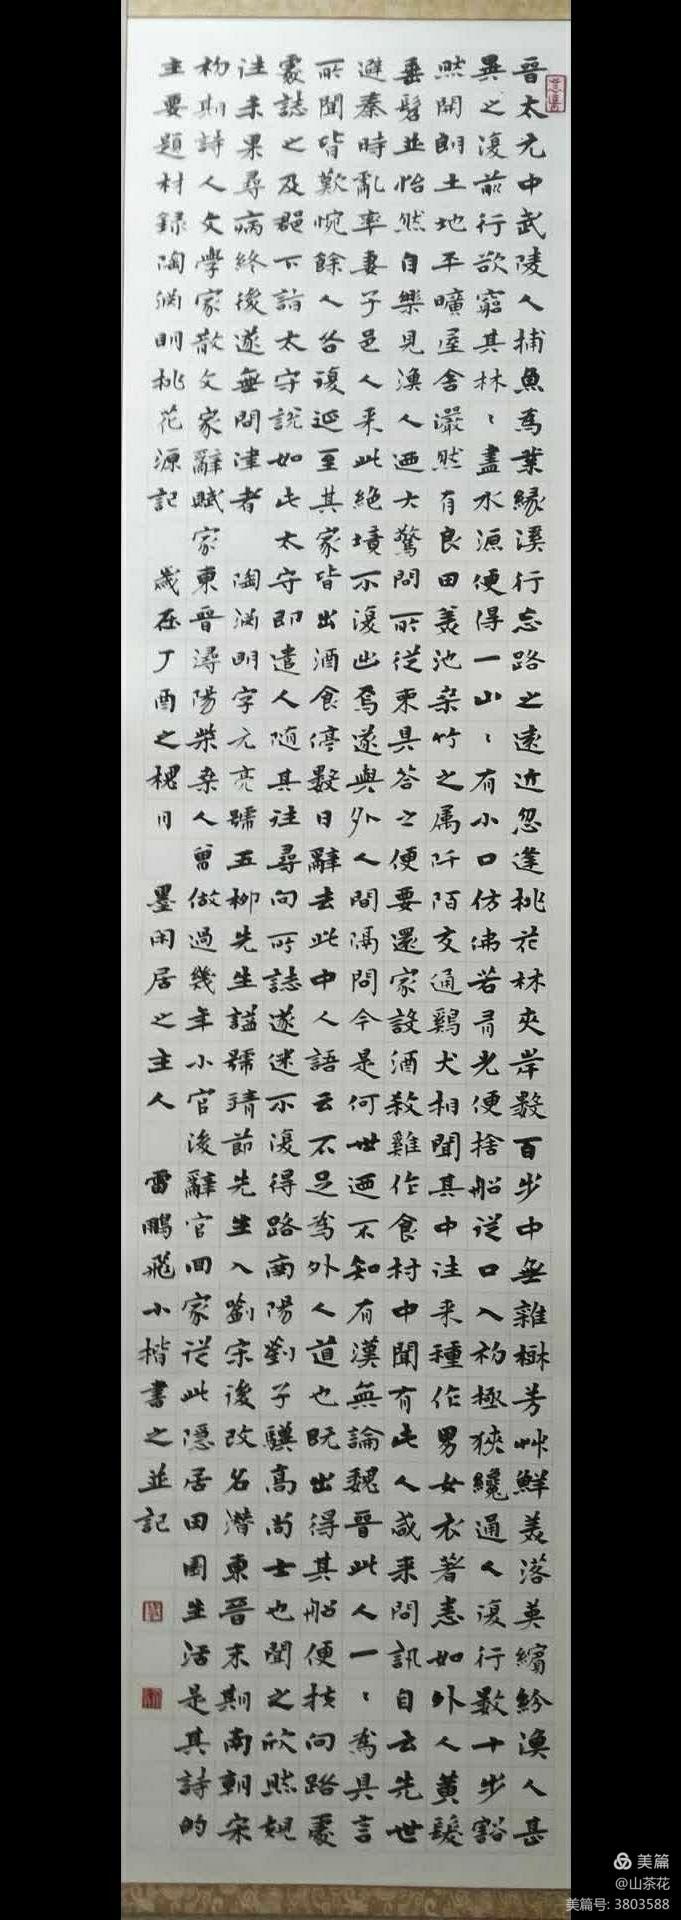 晉太元中武陵人捕魚為業緣溪行忘路之遠近忽逢桃花林夾岸數百步中無雜樹芳艸鮮美落英繽紛漁人甚
異之復前行欲窮其林〻盡水源便得一山〻有小口仿佛若有光便捨船從口入初極狹纔通人復行數十步豁
然開朗土地平曠屋舍儼然有良田美池桑竹之属阡陌交通鷄犬相聞其中往来種作男女衣著悉如外人黃髮
垂髫並怡然自樂見漁人迺大驚問所從来具答之便要還家設酒殺雞作食村中聞有此人咸来問訊自云先世
避秦時亂率妻子邑人来此絶境不復出焉遂與外人間隔問今是何世迺不知有漢無論魏晉此人一〻為具言
所聞皆歎惋餘人各復延至其家皆出酒食停數日辭去此中人語云不足為外人道也既出得其船便扶向路處
處誌之及郡下詣太守說如此太守即遣人随其往尋向所誌遂迷不復得路南陽劉子驥高尚士也聞之欣然規
往未果尋病終後遂無問津者 陶淵明字元亮號五柳先生謚號靖節先生入劉宋後改名潛東晉末期南朝宋
初期詩人文學家散文家辭賦家東晉潯陽柴桑人曾做過幾年小官後辭官回家從此隱居田園生活是其詩的
主要題材録陶淵明桃花源記 歲在丁酉之槐月 墨闲居之主人 雷鵬飛小楷書之並記
美篇
@山茶花
美篇号: 3803588